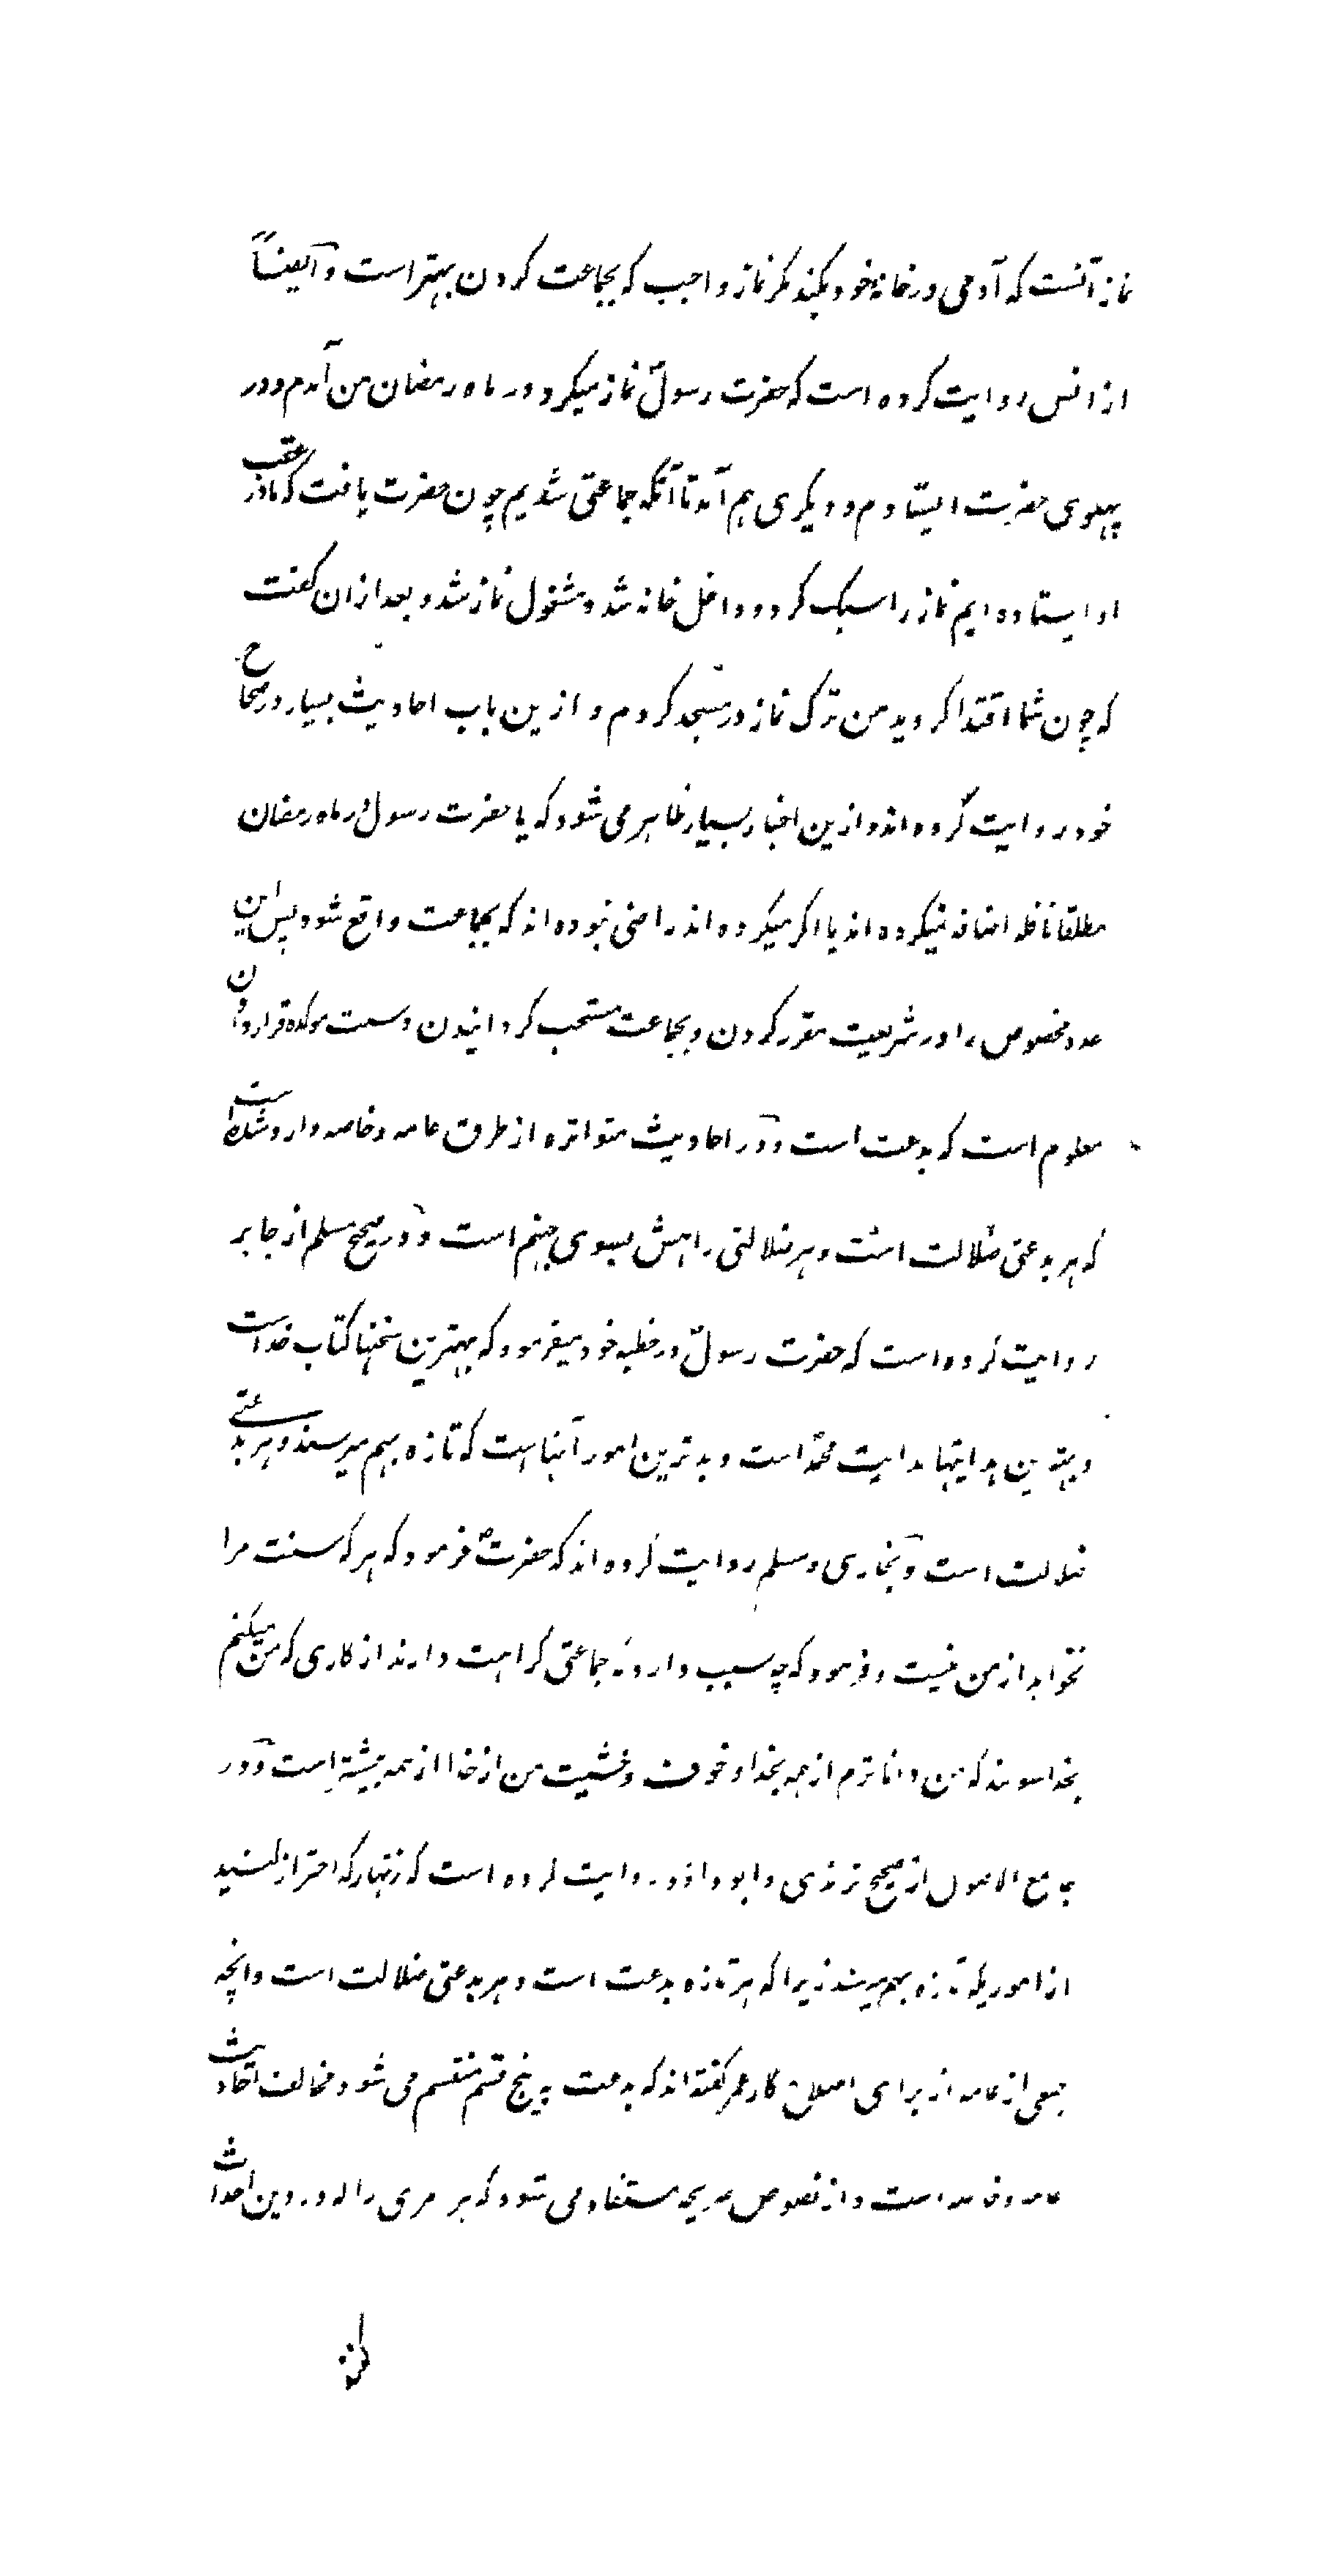 نماز آنست که آدمی در خانه خود بکند مکر نماز واجب که بجماعت کردن بهتر است و ایضاً
از انس روایت کرده است که حضرت رسولؐ نماز میکرد در ماه رمضان من آمدم و در
پهلوی حضرت ایستادم و دیکری هم آمد تا آنکه جماعتی شدیم چون حضرت یافت که ما در عقب
او ایستاده ایم نماز را سبک کرد و داخل خانه شد و مشغول نماز شد و بعد از ان کفت
که چون شما اقتدا کردید من ترک نماز در مسجد کردم و ازین باب احادیث بسیار در صحاح
خود روایت کرده اند و ازین اخبار بسیار ظاهر می شود که یا حضرت رسولؐ در ماه رمضان
مطلقا نافله اضافه نمیکرده اند یا اکر میکرده اند راضی نبوده اند که بجماعت واقع شود پس این
عدد مخصوص را در شریعت مقرر کردن و بجماعت مستحب کردانیدن و سنت موکده قرار دادن
معلوم است که بدعت است و در احادیث متواتره از طرق عامه و خاصه وارد شده است
که هر بدعتی ضلالت است و هر ضلالتی راهش بسوی جهنم است و در صحیح مسلم از جابر
روایت کرده است که حضرت رسولؐ در خطبه خود میفرمود که بهترین سخنها کتاب خداست
و بهترین هدایتها هدایت محمدؐ است و بدترین امور آنهاست که تازه بهم میرسند و هر بدعتی
ضلالت است و بخاری و مسلم روایت کرده اند که حضرتؐ فرمود که هر که سنت مرا
نخواهد از من نیست و فرمود که چه سبب دارد که جماعتی کراهت دارند از کاری که من میکنم
بخدا سوکند که من داناترم از همه بخدا و خوف و خشیت من از خدا از همه بیشتر است و در
جامع الاصول از صحیح ترمذی و ابو داؤد روایت کرده است که زنهار که احتراز کنید
از اموریکه تازه بهم میرسند زیرا که هر تازه بدعت است و هر بدعتی ضلالت است و آنچه
جمعی از عامه از برای اصلاح کار عمر کفته اند که بدعت به پنج قسم منقسم می شود مخالف احادیث
عامه و خاصه است و از نصوص صریحه مستفاد می شود که هر امری را که در دین احداث